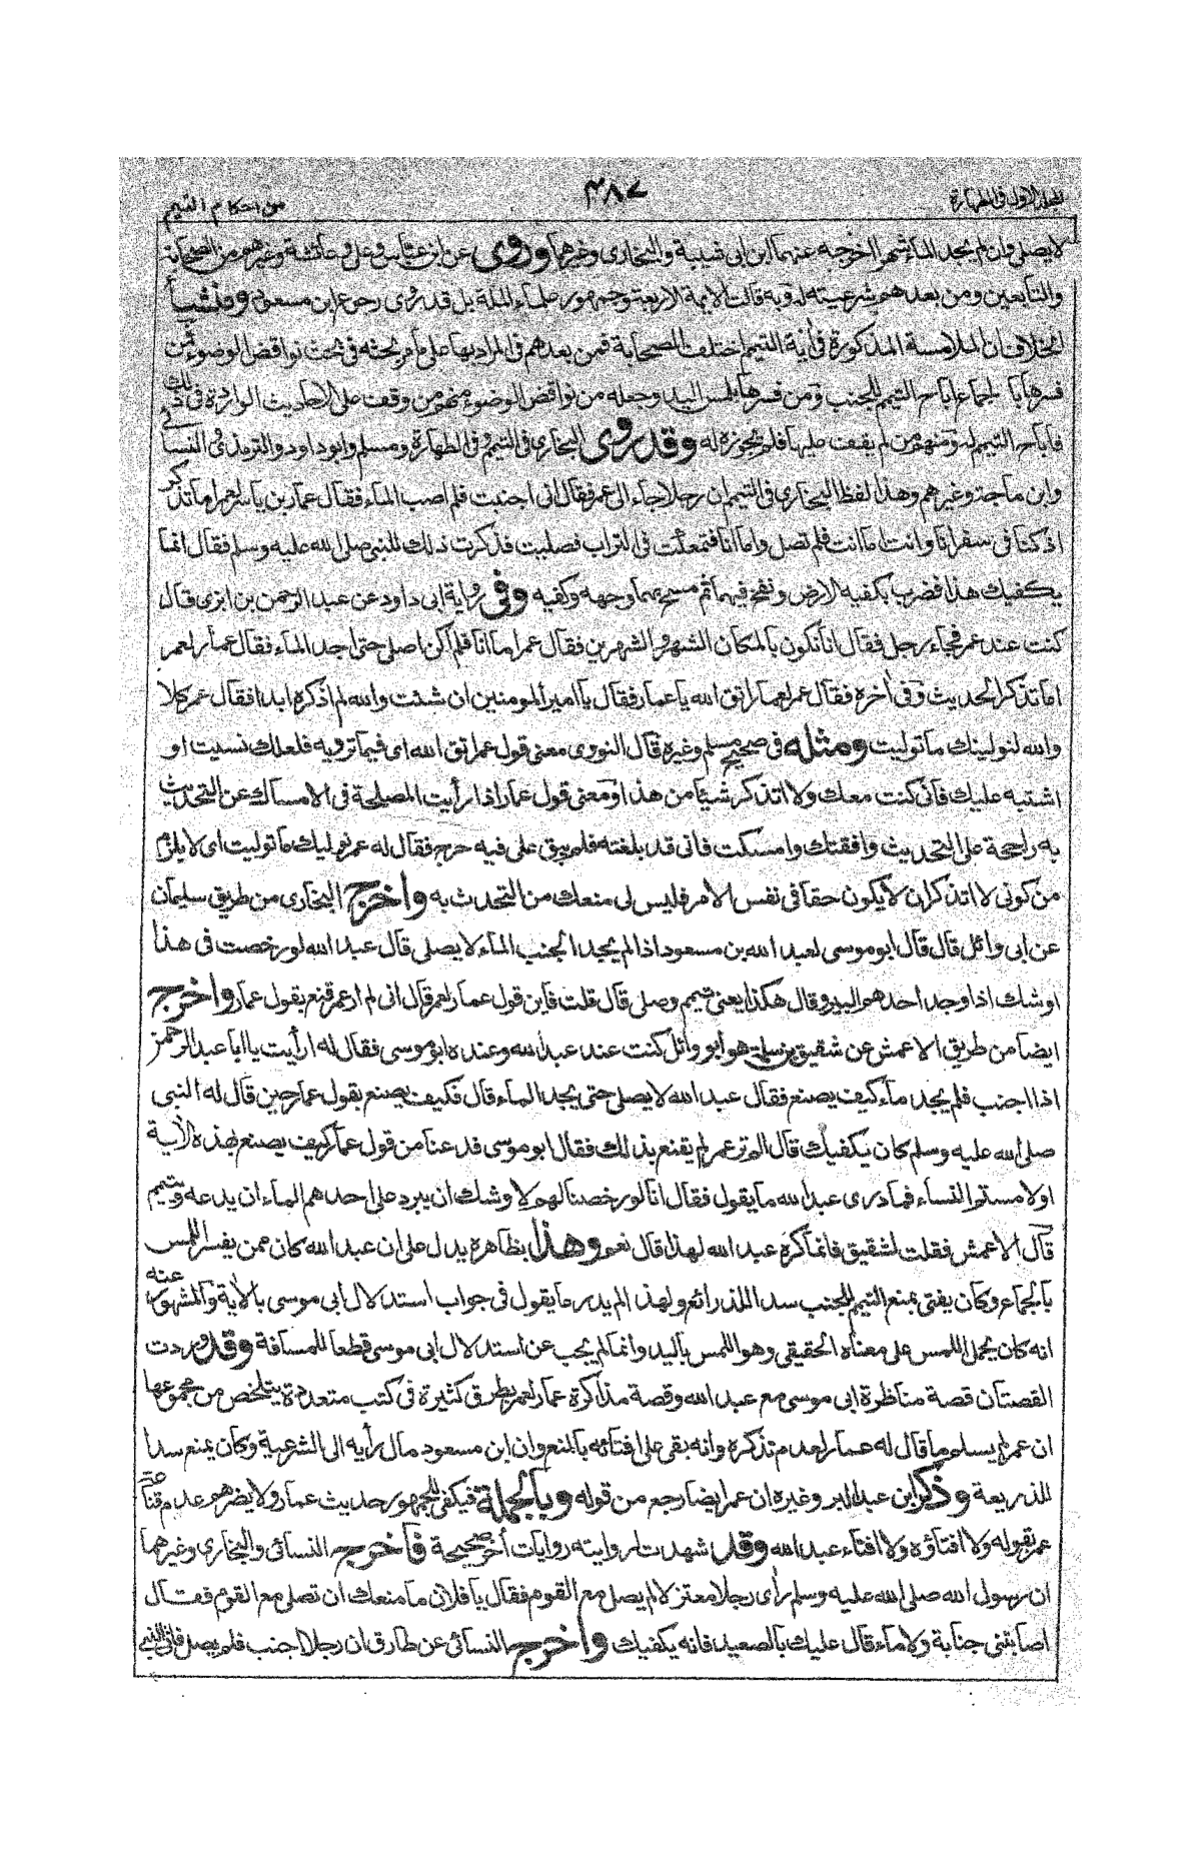 المجلد الاول فى الطهارة
٤٨٧
من احكام التيمم
لا يصلى وان لم يجد الماء شهرا اخرجه عنهما ابن ابى شيبة والبخارى وغيرهما وروى عن ابن عباس وعلى وعائشة وغيرهم من الصحابة
والتابعين ومن بعدهم شرعيته له وبه قالت الايمة الاربعة وجمهور علماء الملة بل قد روى رجوع ابن مسعود ومنشأ
الخلاف ان الملامسة المذكورة فى أية التيمم اختلف الصحابة فمن بعدهم فى المراد بها على ما مر بحثه فى بحث نواقض الوضوء فمن
فسرها بالجماع اباح التيمم للجنب ومن فسرها بلمس اليد وجعله من نواقض الوضوء منهم من وقف على الاحاديث الواردة فى ذلك
فاباح التيمم له ومنهم من لم يقف عليها فلم يجوزه له وقد روى البخارى فى التيمم وفى الطهارة ومسلم وابو داود والترمذى والنسائى
وابن ماجة وغيرهم وهذا لفظ البخارى فى التيمم ان رجلا جاء الى عمر فقال انى اجنبت فلم اصب الماء فقال عمار بن ياسر لعمر اما تذكر
اذ كنا فى سفر انا وانت اما انت فلم تصل واما انا فتمعكت فى التراب فصليت فذكرت ذلك للنبى صلى الله عليه وسلم فقال انما
يكفيك هذا فضرب بكفيه الارض ونفخ فيهما ثم مسح بهما وجهه وكفيه وفى رواية ابى داود عن عبد الرحمن بن ابزى قال
كنت عند عمر فجاءه رجل فقال انا نكون بالمكان الشهر والشهرين فقال عمر اما انا فلم اكن اصلى حتى اجد الماء فقال عمار لعمر
اما تذكر الحديث وفى أخره فقال عمر لعمار اتق الله يا عمار فقال يا امير المومنين ان شئت والله لم اذكره ابدا فقال عمر كلا
والله لنولينك ما توليت ومثله فى صحيح مسلم وغيره قال النووى معنى قول عمر اتق الله اى فيما ترويه فلعلك نسيت او
اشتبه عليك فانى كنت معك ولا اتذكر شيئا من هذا ومعنى قول عمار اذا رأيت المصلحة فى الامساك عن التحديث
به راجحة على التحديث وافقتك وامسكت فانى قد بلغته فلم يبق على فيه حرج فقال له عمر نوليك ما توليت اى لا يلزم
من كونى لا اتذكر ان لا يكون حقا فى نفس الامر فليس لى منعك من التحدث به واخرج البخارى من طريق سليمان
عن ابى وائل قال قال ابو موسى لعبد الله بن مسعود اذا لم يجد الجنب الماء لا يصلى قال عبد الله لو رخصت فى هذا
اوشك اذا وجد احدهم البرد قال هكذا يعنى تيمم وصلى قال قلت فاين قول عمار لعمر قال انى لم ار عمر قنع بقول عمار واخرج
ايضا من طريق الاعمش عن شقيق بن سلمة هو ابو وائل كنت عند عبد الله وعنده ابو موسى فقال له ارأيت يا ابا عبد الرحمن
اذا اجنب فلم يجد ماء كيف يصنع فقال عبد الله لا يصلى حتى يجد الماء قال فكيف يصنع بقول عمار حين قال له النبى
صلى الله عليه وسلم كان يكفيك قال الم تر عمر لم يقنع بذلك فقال ابو موسى فدعنا من قول عمار كيف يصنع بهذه الأية
او لامستم النساء فما درى عبد الله ما يقول فقال انا لو رخصنا لهم لاوشك ان يبرد على احدهم الماء ان يدعه ويتيمم
قال الاعمش فقلت لشقيق فانما كره عبد الله لهذا قال نعم وهذا بظاهره يدل على ان عبد الله كان ممن يفسر اللمس
بالجماع وكان يفتى بمنع التيمم للجنب سدا للذرائع ولهذا لم يدر ما يقول فى جواب استدلال ابى موسى بالأية والمشهور عنه
انه كان يحمل اللمس على معناه الحقيقى وهو اللمس باليد وانما لم يجب عن استدلال ابى موسى قطعا للمسافة وقد وردت
القصتان قصة مناظرة ابى موسى مع عبد الله وقصة مذاكرة عمار لعمر بطرق كثيرة فى كتب متعددة يتلخص من مجموعها
ان عمر لم يسلم ما قال له عمار لعدم تذكره وانه بقى على افتائه بالمنع وان ابن مسعود مال رأيه الى الشرعية وكان يمنع سدا
للذريعة وذكر ابن عبد البر وغيره ان عمر ايضا رجع من قوله وبالجملة فيكفى للجمهور حديث عمار ولا يضرهم عدم قناعة
عمر بقوله ولا افتاؤه ولا افتاء عبد الله وقد شهدت لروايته روايات أخر صحيحة فأخرج النسائى والبخارى وغيرهما
ان رسول الله صلى الله عليه وسلم رأى رجلا معتزلا لم يصل مع القوم فقال يا فلان ما منعك ان تصلى مع القوم فقال
اصابتنى جنابة ولا ماء قال عليك بالصعيد فانه يكفيك واخرج النسائى عن طارق ان رجلا اجنب فلم يصل فاتى النبى